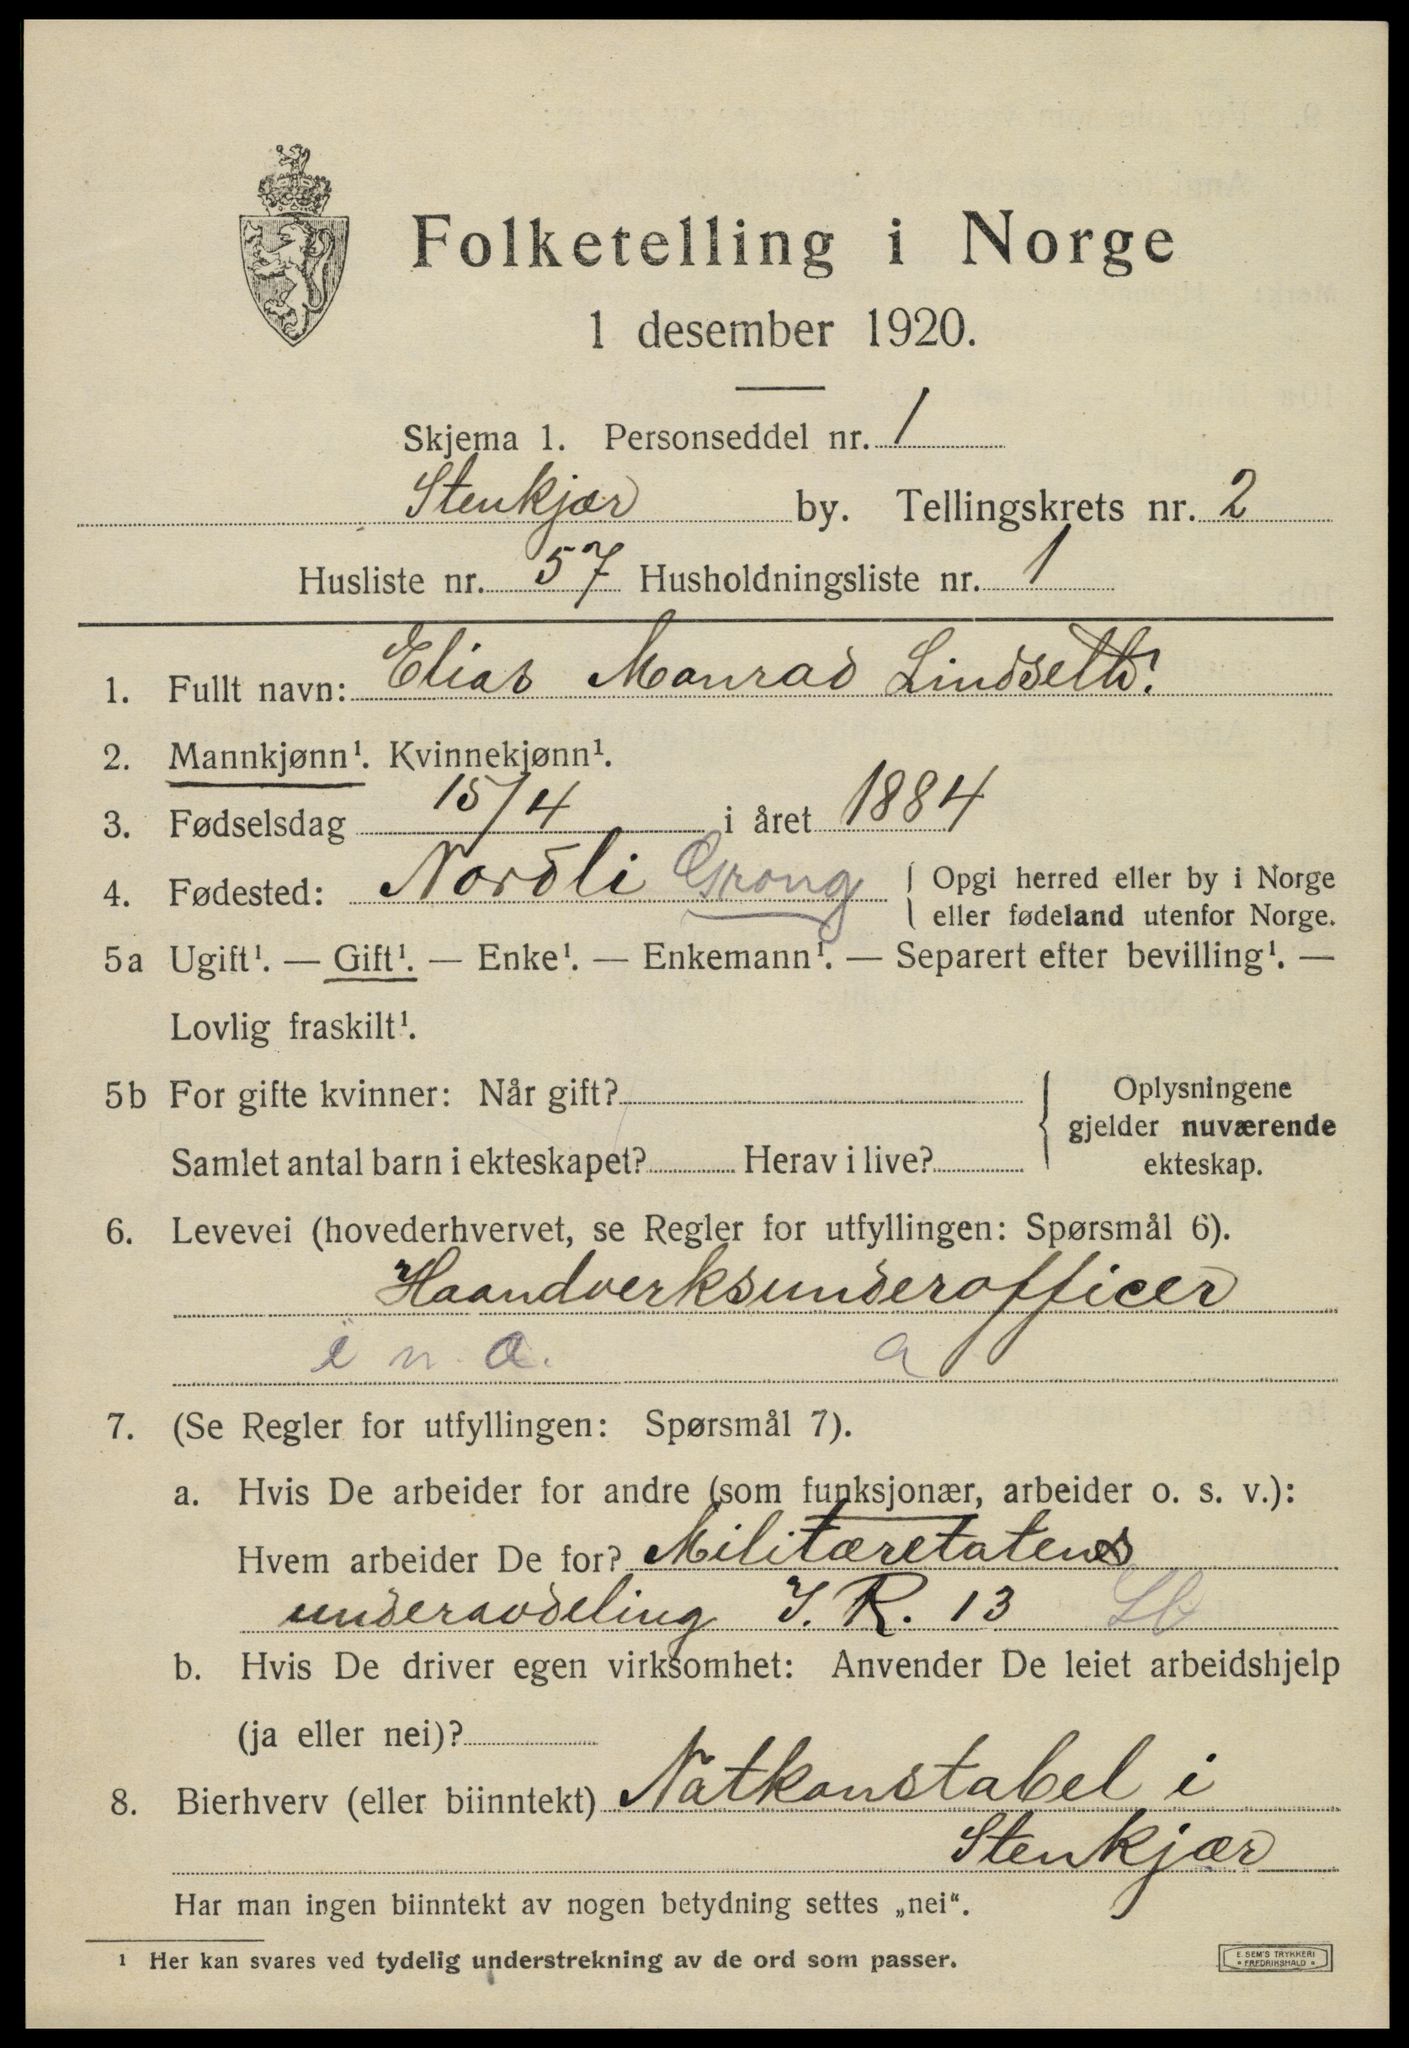 Folketelling i Norge
1 desember 1920.
Skjema 1. Personseddel nr. 1
Stenkjær by. Tellingskrets nr. 2
Husliste nr. 57 Husholdningsliste nr. 1
1. Fullt navn: Elias Monrad Lindseth.
2. Mannkjønn¹. Kvinnekjønn¹.
3. Fødselsdag 15/4 i året 1884
4. Fødested: Nordli Grong { Opgi herred eller by i Norge
eller fødeland utenfor Norge.
5a Ugift¹. — Gift¹. — Enke¹. — Enkemann¹. — Separert efter bevilling¹. —
Lovlig fraskilt¹.
5b For gifte kvinner: Når gift? { Oplysningene
gjelder nuværende
Samlet antal barn i ekteskapet? Herav i live? ekteskap.
6. Levevei (hovederhvervet, se Regler for utfyllingen: Spørsmål 6).
Haandverksunderofficer
i n. a. a
7. (Se Regler for utfyllingen: Spørsmål 7).
a. Hvis De arbeider for andre (som funksjonær, arbeider o. s. v.):
Hvem arbeider De for? Militæretatens
underavdeling I. R. 13
b. Hvis De driver egen virksomhet: Anvender De leiet arbeidshjelp
(ja eller nei)?
8. Bierhverv (eller biinntekt) Natkonstabel i
Stenkjær
Har man ingen biinntekt av nogen betydning settes „nei“.
¹ Her kan svares ved tydelig understrekning av de ord som passer.
E. SEM'S TRYKKERI
FREDRIKSHALD